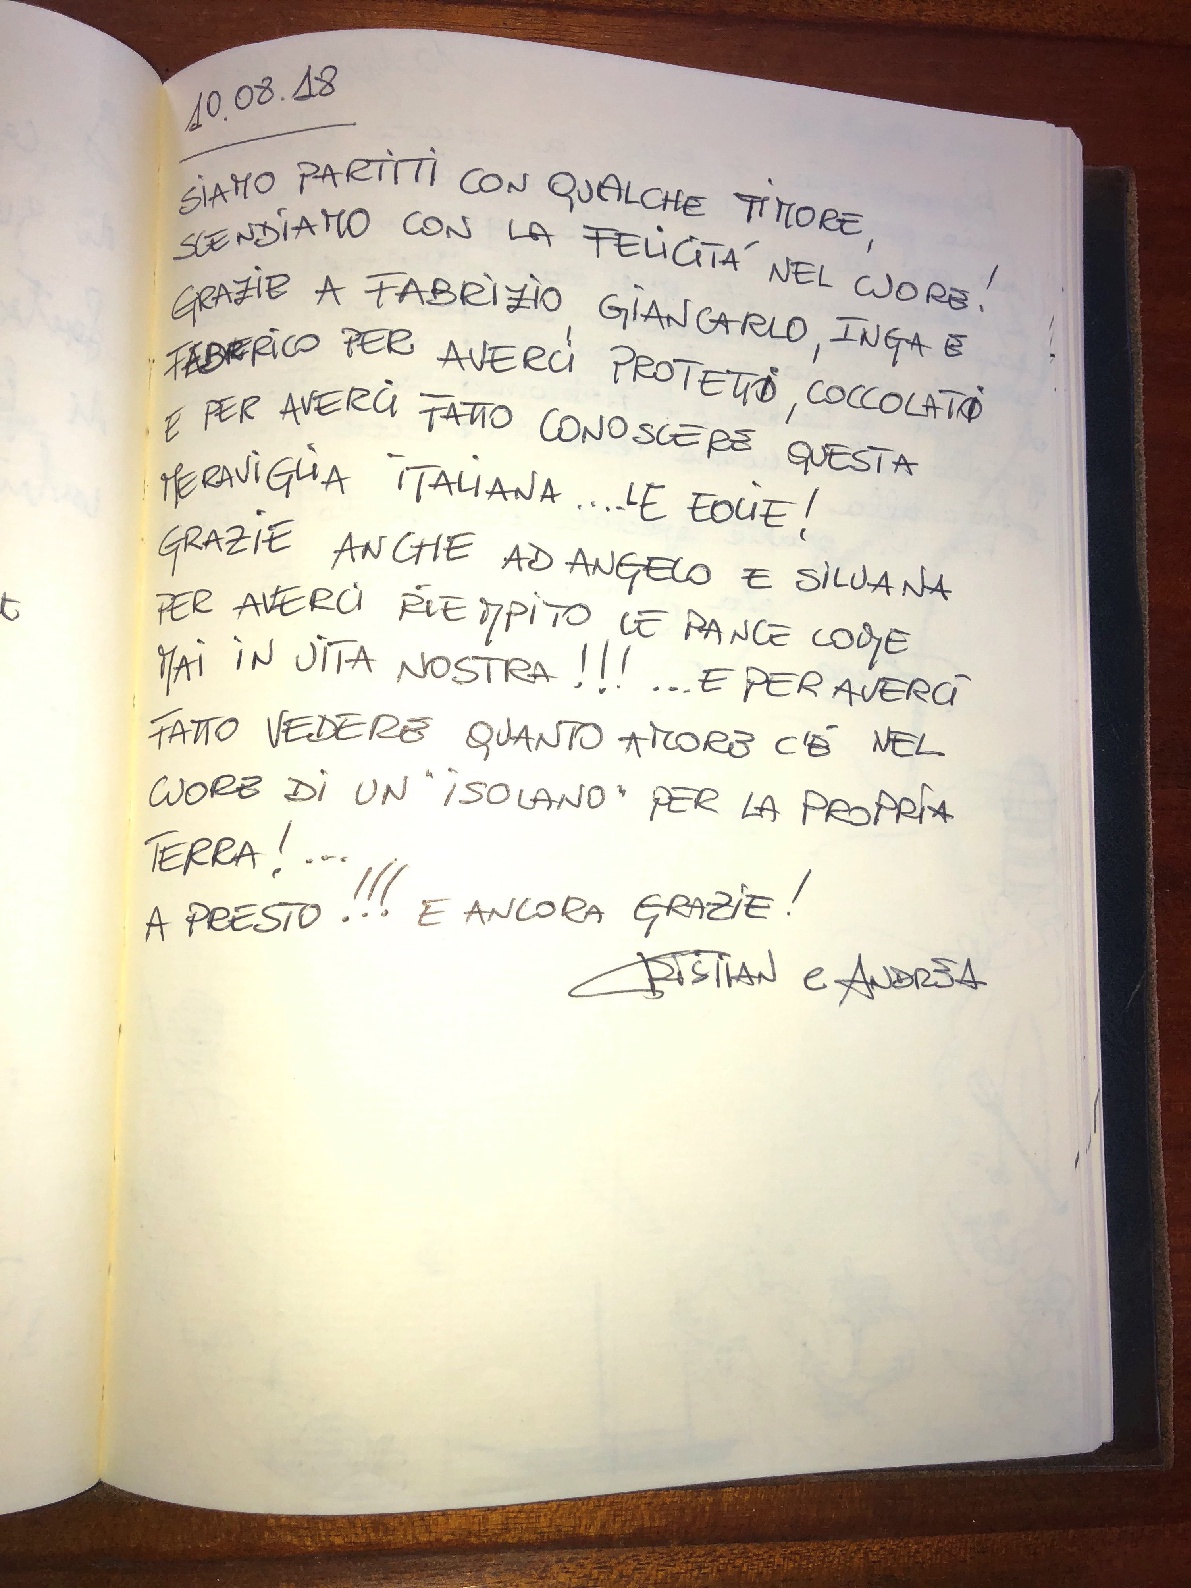 10.08.18
SIAMO PARTITI CON QUALCHE TIMORE,
SCENDIAMO CON LA FELICITA' NEL CUORE!
GRAZIE A FABRIZIO, GIANCARLO, INGA E
FABRICO PER AVERCI PROTETTI, COCCOLATI
E PER AVERCI FATTO CONOSCERE QUESTA
MERAVIGLIA ITALIANA ....LE EOLIE!
GRAZIE ANCHE AD ANGELO E SILVANA
PER AVERCI RIEMPITO LE PANCE COME
MAI IN VITA NOSTRA!!! ...E PER AVERCI
FATTO VEDERE QUANTO AMORE C'È NEL
CUORE DI UN "ISOLANO" PER LA PROPRIA
TERRA!...
A PRESTO!!! E ANCORA GRAZIE!
CRISTIAN e ANDREA